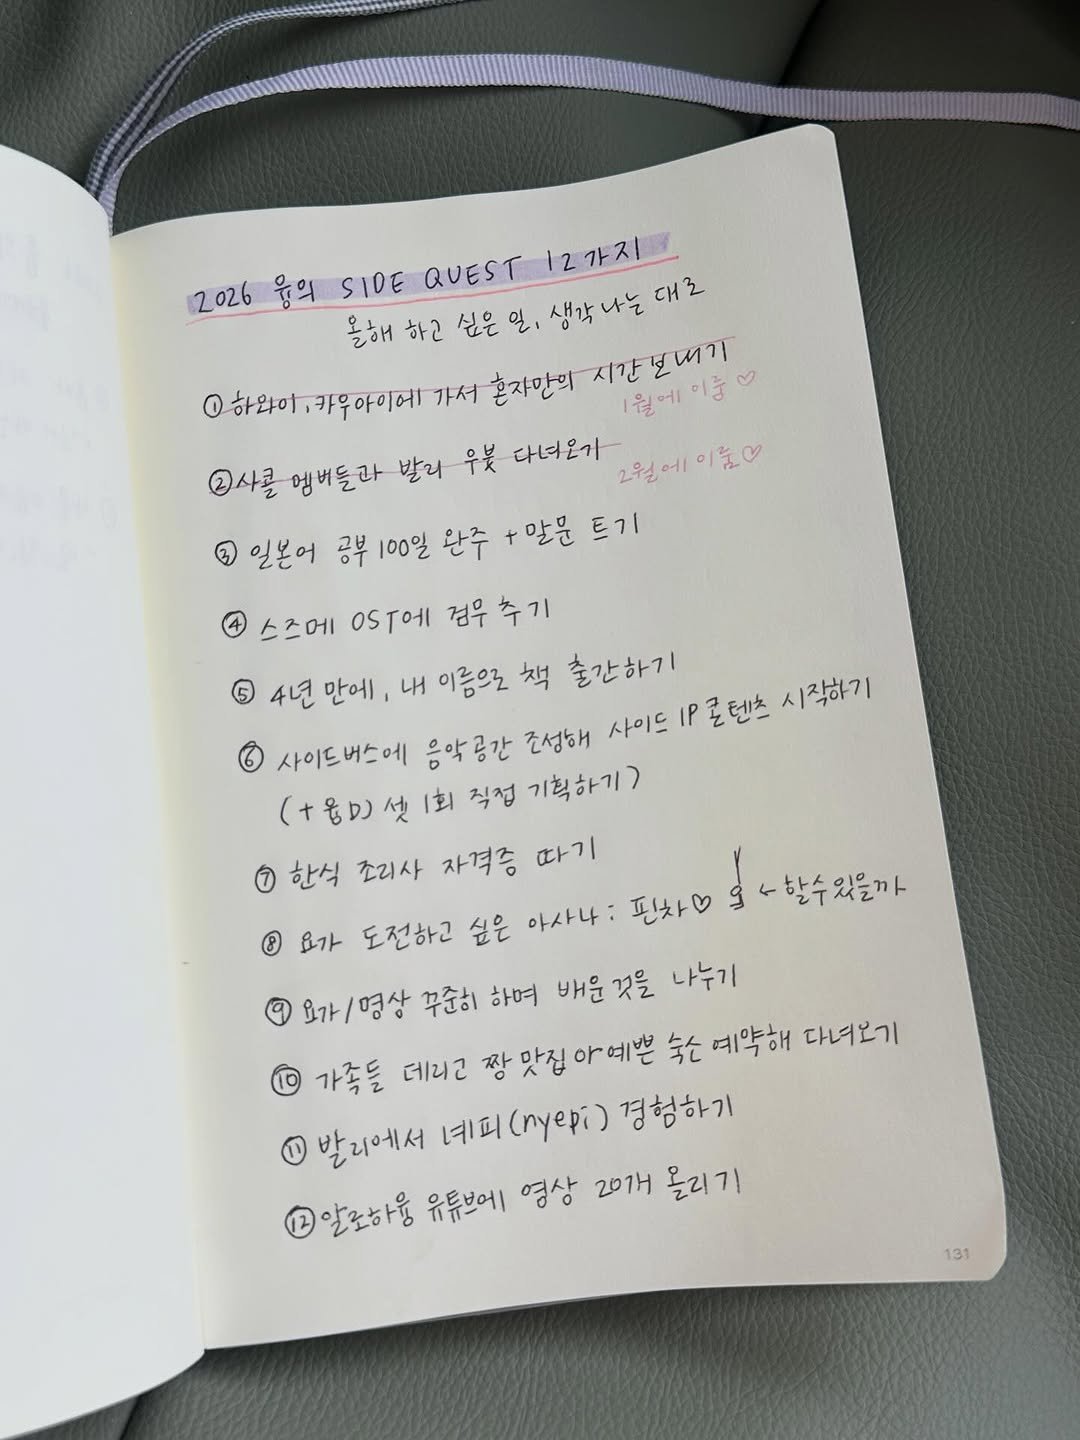 2026 융의 SIDE QUEST 12가지
올해 하고 싶은 일, 생각나는 대로
① 하와이, 카우아이에 가서 혼자만의 시간 보내기
1월에 이룸♡
② 사콜 멤버들과 발리 우붓 다녀오기
2월에 이룸♡
③ 일본어 공부 100일 완주 + 말문 트기
④ 스즈메 OST에 검무 추기
⑤ 4년 만에, 내 이름으로 책 출간하기
⑥ 사이드버스에 음악공간 조성해 사이드 IP 콘텐츠 시작하기
(+ 융D) 셋 1회 직접 기획하기)
⑦ 한식 조리사 자격증 따기
⑧ 요가 도전하고 싶은 아사나 : 핀차♡ ← 할 수 있을까
⑨ 요가/명상 꾸준히 하며 배운 것을 나누기
⑩ 가족들 데리고 짱 맛집 and 예쁜 숙소 예약해 다녀오기
⑪ 발리에서 녜피(nyepi) 경험하기
⑫ 알로하융 유튜브에 영상 20개 올리기
131